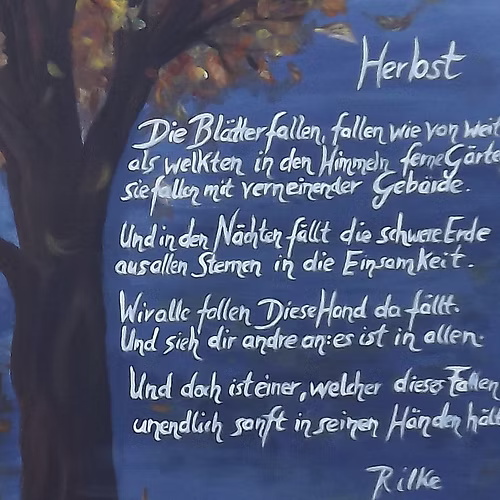 Herbst
Die Blätter fallen, fallen wie von weit
als welkten in den Himmeln ferne Gärte
sie fallen mit verneinender Gebärde.
Und in den Nächten fällt die schwere Erde
aus allen Sternen in die Einsamkeit.
Wir alle fallen Diese Hand da fällt.
Und sieh dir andre an: es ist in allen.
Und doch ist einer, welcher dieses Fallen
unendlich sanft in seinen Händen hält
Rilke